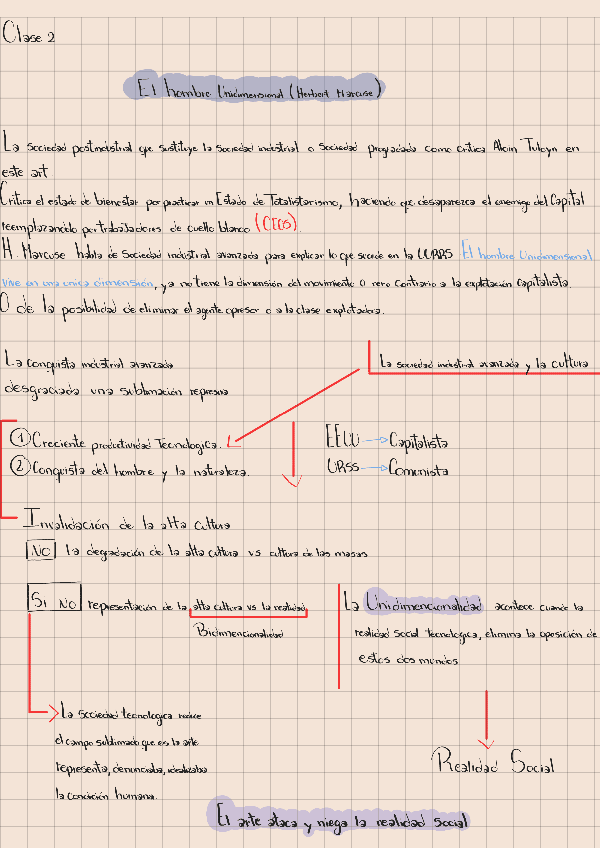 Clase 2
El hombre Unidimensional (Herbert Marcuse)
La sociedad postindustrial que sustituye la sociedad industrial o sociedad programada como critica Alain en
este art
Critica el estado de bienestar por practicar un Estado de Totalistarismo, haciendo que desaparezca el enemigo del Capital
reemplazandolo por trabajadores de cuello blanco
H. Marcuse habla de Sociedad industrial avanzada para explicar lo que sucede en la UURRS El hombre Unidimensional
Vive en una unica dimensión, ya no tiene la dimensión del movimiento O contrario a la explotación capitalista.
O de la posibilidad de eliminar el agente opresor o a la clase explotadora.
La conquista industrial avanzada
desgraciada una sublimación represiva
La sociedad industrial avanzada y la cultura
① Creciente productividad Tecnologica.
② Conquista del hombre y la naturaleza.
EEUU → Capitalista
URSS → Comunista
Invalidación de la alta cultura
NO la degradación de la alta cultura vs cultura de las masas
Si NO representación de la alta cultura vs la realidad
Bidimencionalidad
La Unidimencionalidad acontece cuando la
realidad social tecnologica, elimina la oposición de
estos dos mundos
La sociedad tecnologica reduce
el campo sublimado que es la arte
representa, denunciaba, idealizaba
la condición humana.
Realidad Social
El arte ataca y niega la realidad social